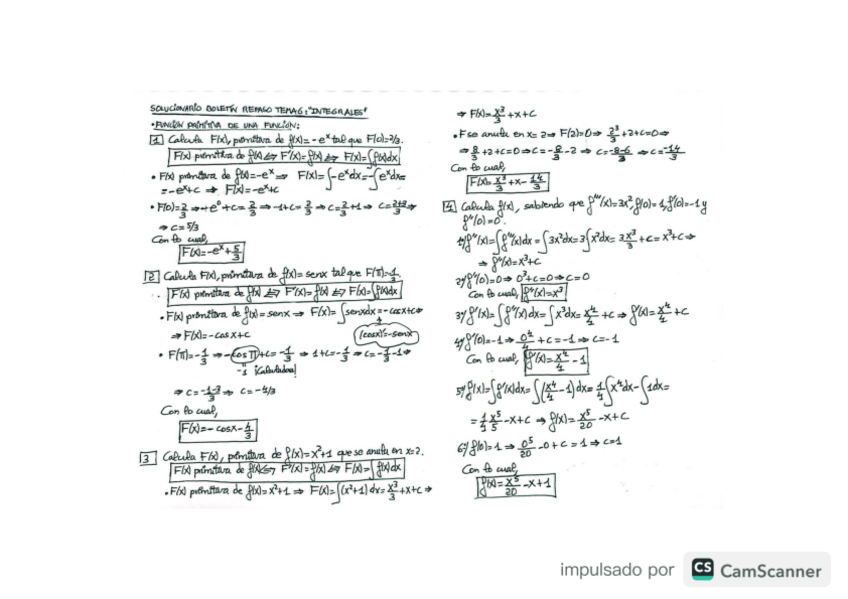 SOLUCIONARIO BOLETÍN REPASO TEMA 6: "INTEGRALES"
• FUNCIÓN PRIMITIVA DE UNA FUNCIÓN:
1 Calcula F(x), primitiva de f(x)=-eˣ tal que F(0)=2/3.
F(x) primitiva de f(x) ⇔ F'(x)=f(x) ⇔ F(x)=∫f(x)dx
• F(x) primitiva de f(x)=-eˣ ⇒ F(x)=∫-eˣdx=-∫eˣdx=
=-eˣ+c ⇒ F(x)=-eˣ+c
• F(0)=2/3 ⇒ -e⁰+c=2/3 ⇒ -1+c=2/3 ⇒ c=2/3+1 ⇒ c=2+3/3 ⇒
⇒ c=5/3
Con lo cual,
F(x)=-eˣ+5/3
2 Calcula F(x), primitiva de f(x)=senx tal que F(π)=-1/3
F(x) primitiva de f(x) ⇔ F'(x)=f(x) ⇔ F(x)=∫f(x)dx
• F(x) primitiva de f(x)=senx ⇒ F(x)=∫senxdx=-cosx+c⇒
⇒ F(x)=-cosx+c
(cosx)'=-senx
• F(π)=-1/3 ⇒ -cosπ+c=-1/3 ⇒ 1+c=-1/3 ⇒ c=-1/3-1⇒
-1 ¡Calculadora!
⇒ c=-1-3/3 ⇒ c=-4/3
Con lo cual,
F(x)=-cosx-4/3
3 Calcula F(x), primitiva de f(x)=x²+1 que se anula en x=2.
F(x) primitiva de f(x) ⇔ F'(x)=f(x) ⇔ F(x)=∫f(x)dx
• F(x) primitiva de f(x)=x²+1 ⇒ F(x)=∫(x²+1)dx=x³/3+x+c ⇒
⇒ F(x)=x³/3+x+c
• F se anula en x=2⇒ F(2)=0⇒ 2³/3+2+c=0⇒
⇒ 8/3+2+c=0⇒c=-8/3-2 ⇒ c=-8-6/3 ⇒ c=-14/3
Con lo cual,
F(x)=x³/3+x-14/3
4 Calcula f(x), sabiendo que f'''(x)=3x², f(0)=1, f'(0)=-1 y
f''(0)=0.
1º/ f''(x)=∫f'''(x)dx=∫3x²dx=3∫x²dx=3x³/3+c=x³+c⇒
⇒ f''(x)=x³+c
2º/ f''(0)=0⇒ 0³+c=0⇒c=0
Con lo cual, f''(x)=x³
3º/ f'(x)=∫f''(x)dx=∫x³dx=x⁴/4+c ⇒ f'(x)=x⁴/4+c
4º/ f'(0)=-1⇒ 0⁴/4+c=-1⇒c=-1
Con lo cual, f'(x)=x⁴/4-1
5º/ f(x)=∫f'(x)dx=∫(x⁴/4-1)dx=1/4∫x⁴dx-∫1dx=
=1/4 x⁵/5-x+c ⇒ f(x)=x⁵/20-x+c
6º/ f(0)=1⇒ 0⁵/20-0+c=1⇒c=1
Con lo cual,
f(x)=x⁵/20-x+1
impulsado por CS CamScanner